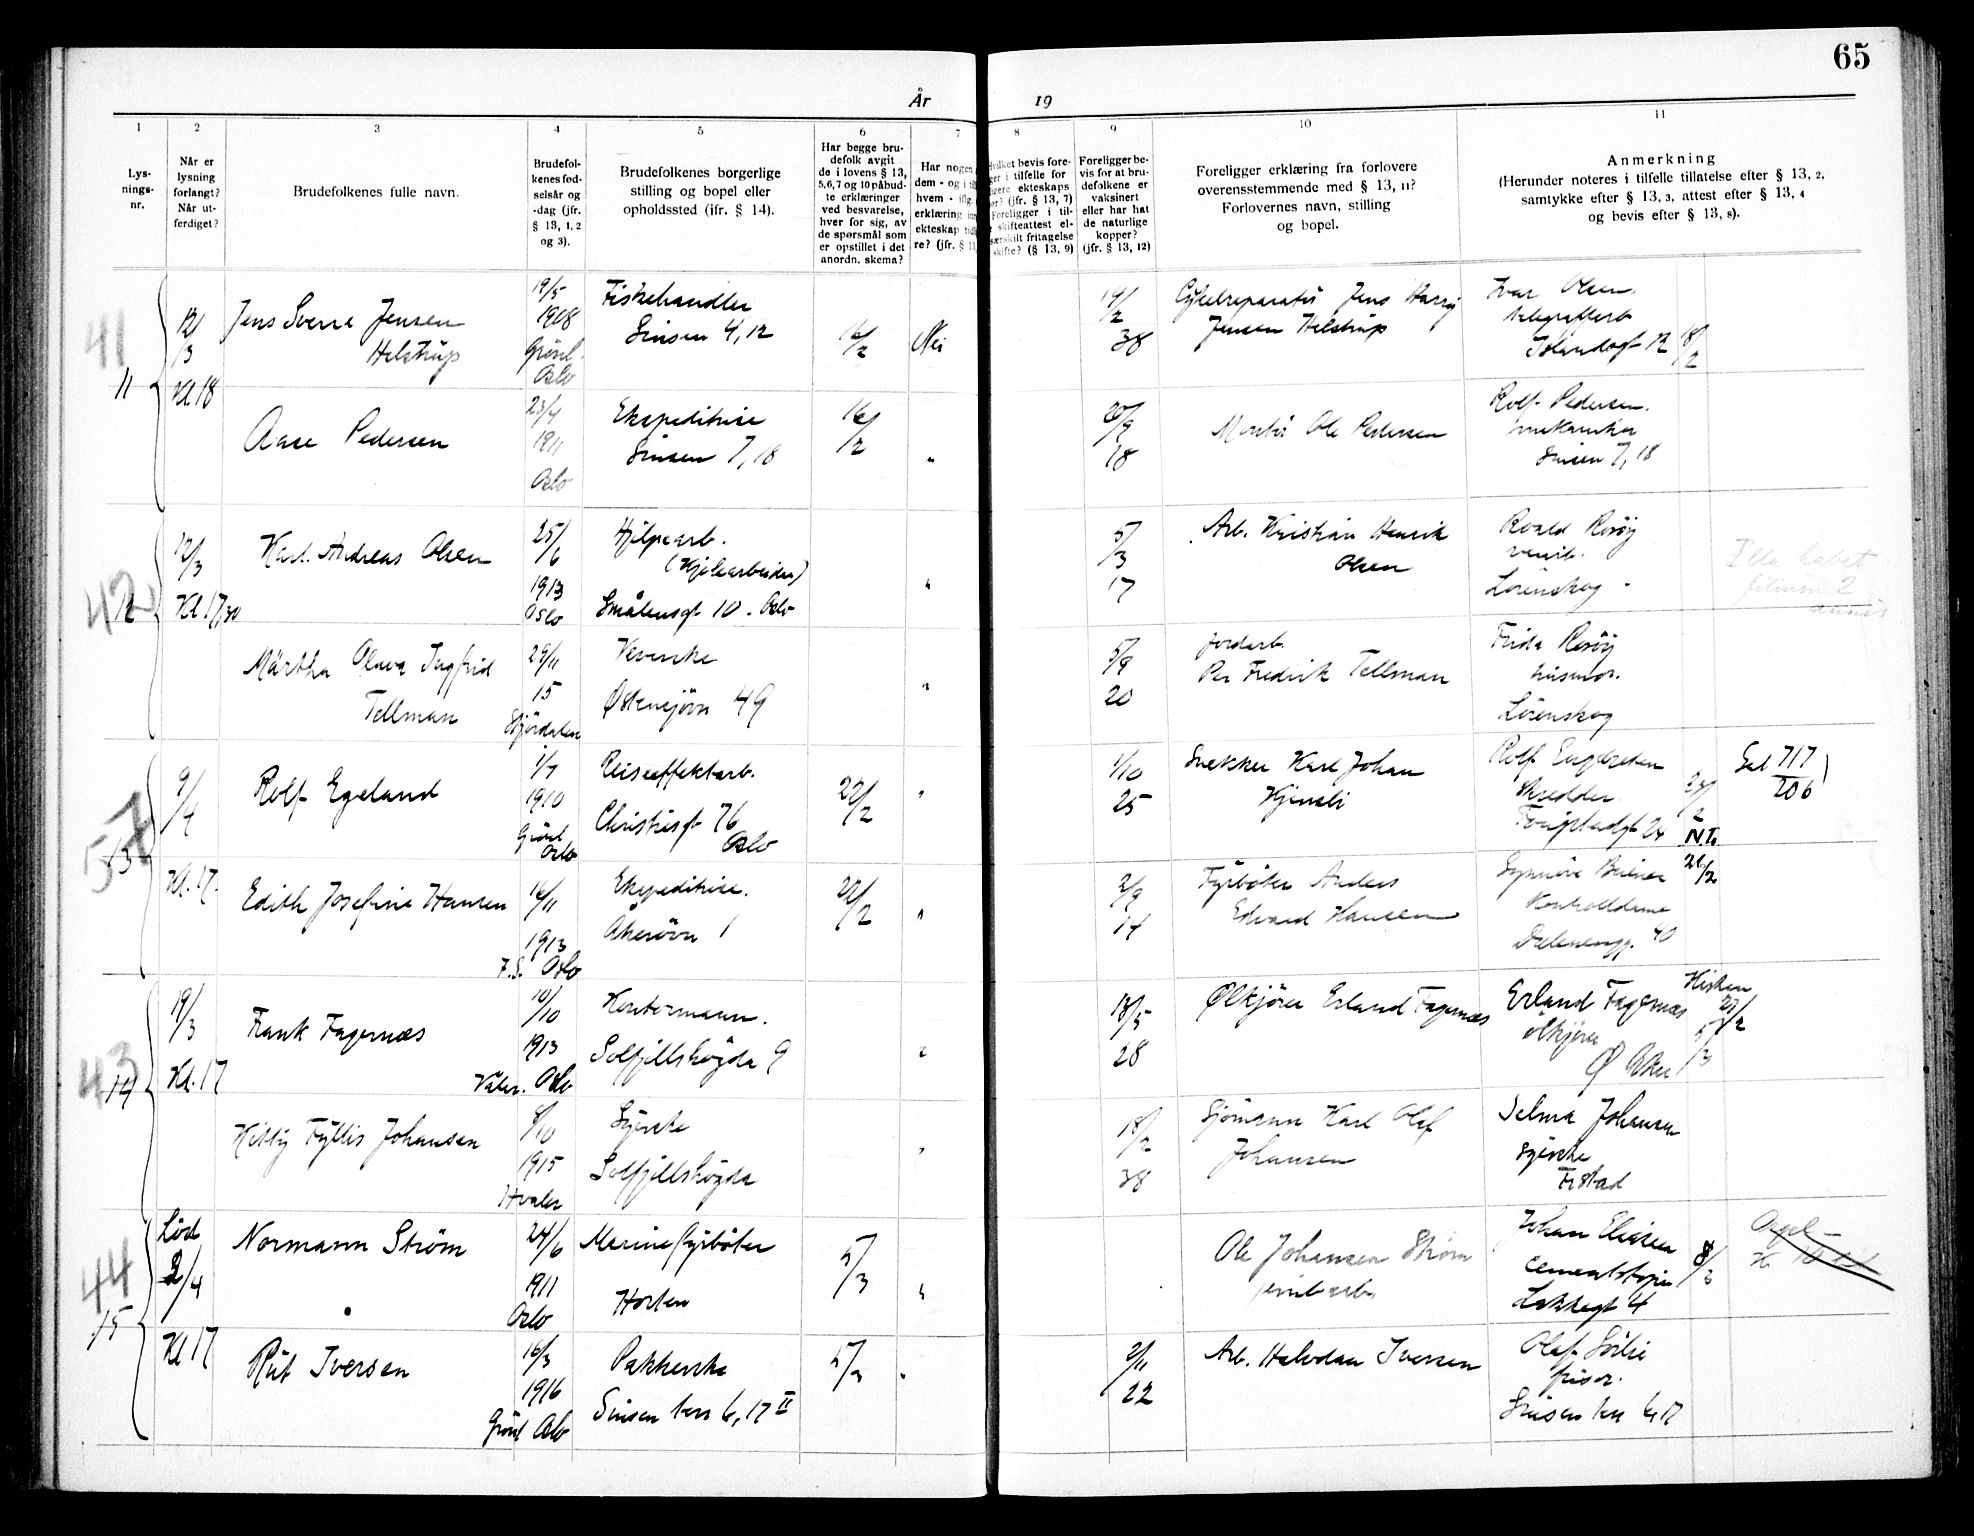 65
År 19
1 2 3 4 5 6 7 8 9 10 11
Lys-
nings-
nr.
Når er
lysning
forlangt?
Når ut-
ferdiget?
Brudefolkenes fulle navn.
Brudefol-
kenes fød-
selsår og
-dag (jfr.
§ 13, 1, 2
og 3).
Brudefolkenes borgerlige
stilling og bopel eller
opholdssted (ifr. § 14).
Har begge bru-
defolk avgit
de i lovens § 13,
5, 6, 7 og 10 påbud-
te erklæringer
ved besvarelse,
hver for sig, av
de spørsmål som
er opstillet i det
anordn. skema?
Har nogen
dem - og i
hvem - iflg.
erklæring
ekteskap
re? (jfr. §
Hvilket bevis fore-
ger i tilfelle for
ligere ekteskaps
(jfr. § 13, 7)
Foreligger i til-
skifteattest el-
særskilt fritagelse
skifte? (§ 13, 9)
Foreligger be-
vis for at bru-
defolkene er
vaksinert
eller har hat
de naturlige
kopper?
(jfr. § 13, 12)
Foreligger erklæring fra forlovere
overensstemmende med § 13, 11?
Forlovernes navn, stilling
og bopel.
Anmerkning
(Herunder noteres i tilfelle tillatelse efter § 13, 2,
samtykke efter § 13, 3, attest efter § 13, 4
og bevis efter § 13, 8).
41
11
12/3
Kl 18
Jens Sverre Jensen
Helstrup
19/5
1908
Grønl.
Oslo
Fiskehandler
Sinsen 4, 12
16/2
Nei
14/2
38
Cykelreparatør Jens Harry
Jensen Helstrup
Ivar Olsen.
telegrafarb
12
18/2
Aase Pedersen
23/4
1911
Oslo
Ekspeditrise
Sinsen 7, 18
16/2
"
20/9
18
Montør Ole Pedersen
Rolf Pedersen.
mekaniker
Sinsen 7, 18
42
12
12/3
Kl 17,30
Karl Andreas Olsen
25/6
1913
Oslo
Hjelpearb.
(Kjelearbeider)
Smålensgt 10. Oslo
"
5/3
17
Arb. Kristian Henrik
Olsen
Roald Rosøy
Lørenskog
Illa habet
filium 2
annis
Märtha Olava Ingfrid
Tellman
29/11
15
Stjørdalen
Veverske
Østensjøvn 49
"
5/9
20
Jordarb.
Per Fredrik Tellman
Frida Rosøy
husmor.
Lørenskog
57
13
9/4
Kl. 17.
Rolf Egeland
1/7
1910
Grønl.
Oslo
Reiseeffektarb.
Christiesgt 76
Oslo
22/2
"
1/10
25
Snekker Karl Johan
Rolf Engebretsen
Skredder
24
N.T.
717
206
Edith Josefine Hansen
16/11
1913
F.S. Oslo
Ekspeditrise.
Åkersvn 1
22/2
"
2/9
14
Fyrbøter Anders
Edvard Hansen
Kontrolldame
Dælenengg. 40
43
14
19/3
Kl. 17
Frank Fagernæs
10/10
1913
Våler. Oslo
Kontormann.
Solfjellshøgda 9
"
18/5
28
Ølkjører Erland Fagernæs
Erland Fagernæs
ølkjører
Ø Aker
5/3
Kitty Fyllis Johansen
8/10
1915
Hvaler
Syerske
Solfjellshøgda
"
18/2
38
Sjømann Karl Olaf
Johansen
Selma Johansen
syerske
44
15
Lørd
2/4
Kl 17
Normann Strøm
24/6
1911
Oslo
Marinefyrbøter
Horten
5/3
"
Ole Johansen Strøm
jernbarb.
Johan Eliesen
cementstøper
Lakkegt 4
8/3
Orgel
Rut Iversen
16/3
1916
Grønl Oslo
Pakkerske
Sinsen terr 6, 17 II
5/3
"
2/11
22
Arb. Halvdan Iversen
Olaf Sørlie
frisør.
Sinsen terr 6, 17